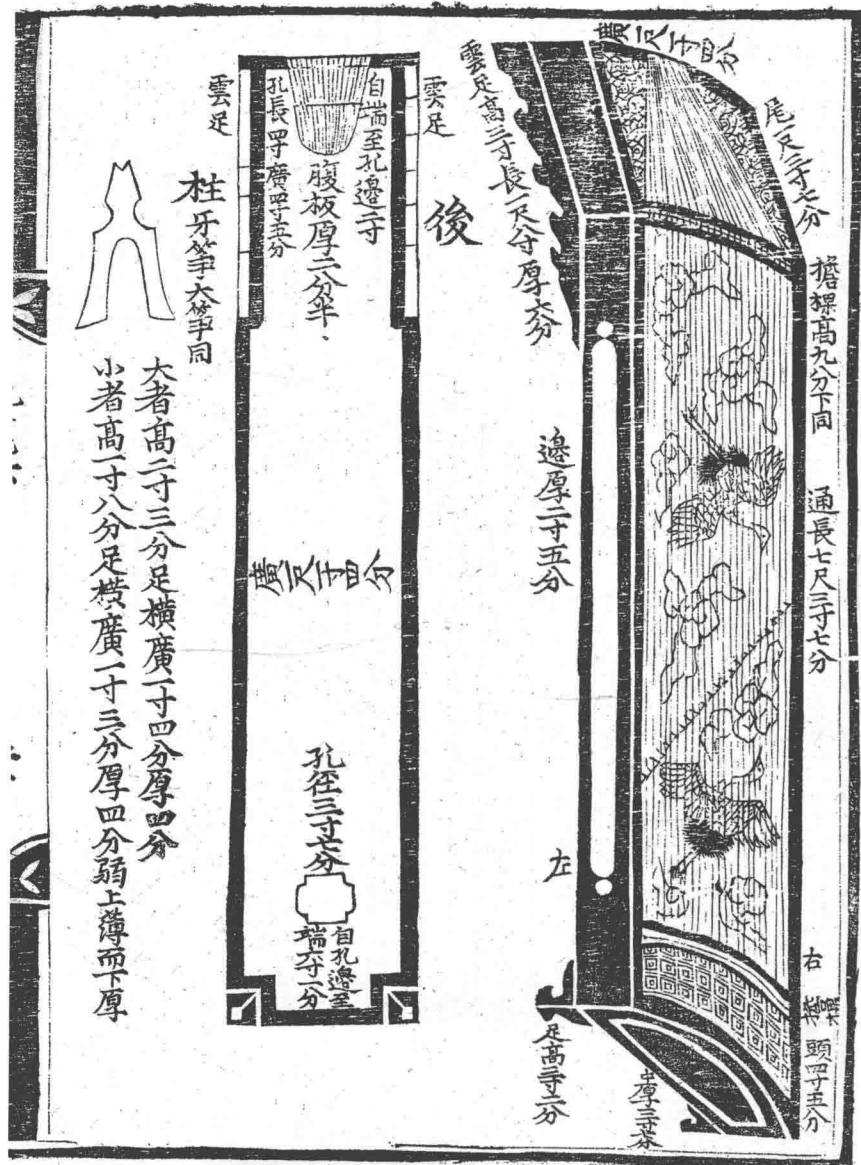 廣一尺一寸四分
尾一尺三寸七分
擔棵高九分下同
通長七尺三寸七分
右
頭四寸五分
雲足高三寸長一尺
邊厚二寸五分
左
足高二寸二分
後
雲足
自端至孔邊二寸
腹板厚二分半
孔長四寸廣四寸五分
雲足
廣一尺一寸四分
孔徑三寸七分
自孔邊至
端六寸一分
柱
牙箏大箏同
大者高二寸三分足橫廣一寸四分厚四分
小者高一寸八分足橫廣一寸三分厚四分弱上薄而下厚